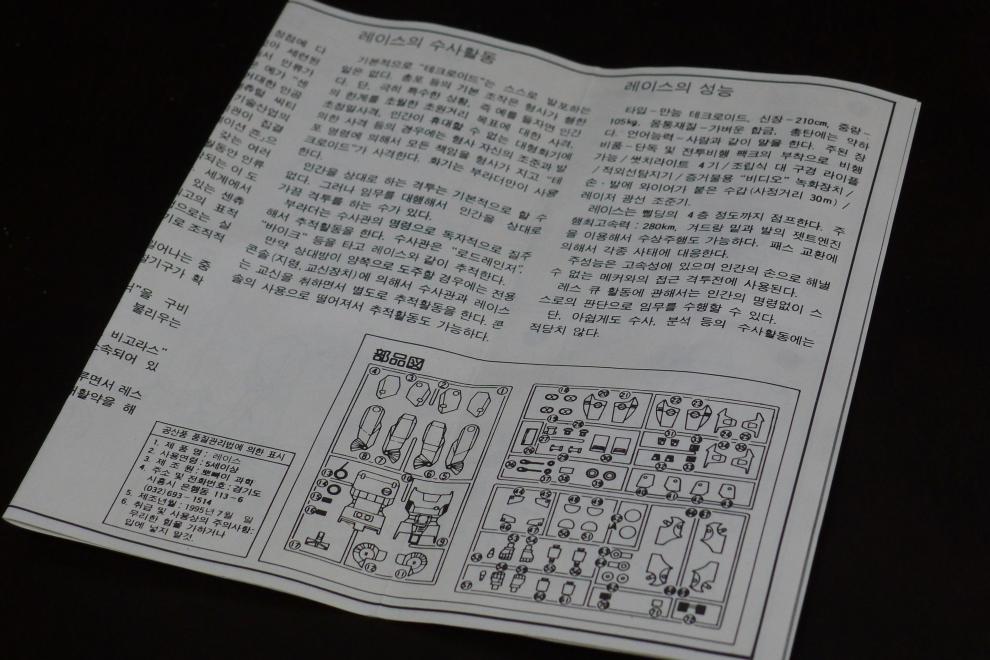 점점에 다
세련된
서 인류가
예가 "센
거대한 인공
휴럴 씨티
기술산업의
관이 집결
이션 존"으
갖는 여러
동안 인류
되는 이 도
세계에서
있는 센츄
고의 표적
으로는 실
기로 조작적
일어나는 중
탐기구가 확
"을 구비
불리우는
비고라스"
소속되어 있
루면서 레스
활약을 해
레이스의 수사활동
기본적으로 "테크로이드"는 스스로 발포하는
일은 없다. 총포 등의 기본 조작은 형사가 행한
다. 단, 극히 특수한 상황, 즉 예를 들자면 인간
의 한계를 초월한 초원거리 목표에 대한 사격,
초정밀사격, 인간이 휴대할 수 없는 대형화기에
의한 사격 등의 경우에는 형사 자신의 조준과 발
포 명령에 의해서 모든 책임을 형사가 지고, "테
크로이드"가 사격한다. 화기는 부라더만이 사용
한다.
인간을 상대로 하는 격투는 기본적으로 할 수
없다. 그러나 임무를 대행해서 인간을 상대로
가끔 격투를 하는 수가 있다.
부라더는 수사관의 명령으로 독자적으로 질주
해서 추적활동을 한다. 수사관은 "로드레인저".
"바이크" 등을 타고 레이스와 같이 추적한다.
만약 상대방이 양쪽으로 도주할 경우에는 전용
콘솔(지령, 교신장치)에 의해서 수사관과 레이스
는 교신을 취하면서 별도로 추적활동을 한다. 콘
솔의 사용으로 떨어져서 추적활동도 가능하다.
레이스의 성능
타입-만능 테크로이드, 신장-210cm, 중량-
105kg. 몸통재질-가벼운 합금. 총탄에는 약하
다. 언어능력-사람과 같이 말을 한다. 주된 장
비품-단독 및 전투비행 팩크의 부착으로 비행
가능/썻치라이트 4기/조립식 대 구경 라이플
/적외선탐지기/증거물용 "비디오" 녹화장치/
손·발에 와이어가 붙은 수갑(사정거리 30m)/
레이저 광선 조준기.
레이스는 삘딩의 4층 정도까지 점프한다. 주
행최고속력: 280km, 겨드랑 밑과 발의 젯트엔진
을 이용해서 수상주행도 가능하다. 패스 교환에
의해서 각종 사태에 대응한다.
주성능은 고속성에 있으며 인간의 손으로 해낼
수 없는 메커와의 접근 격투전에 사용된다.
레스 큐 활동에 관해서는 인간의 명령없이 스
스로의 판단으로 임무를 수행할 수 있다.
단, 아쉽게도 수사, 분석 등의 수사활동에는
적당치 않다.
部品図
공산품 품질관리법에 의한 표시
1. 제 품 명 : 레이스
2. 사용연령 : 5세이상
3. 제 조 원 : 뽀빠이 과학
4. 주소 및 전화번호 : 경기도
시흥시 은행동 113-6
(032)693-1514
5. 제조년월 : 1995년 7월 일
6. 취급 및 사용상의 주의사항:
무리한 힘을 가하거나
입에 넣지 말것.